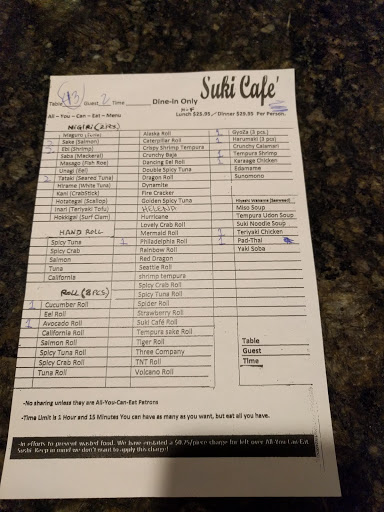 Suki Cafe'
Table 43 Guest 2 Time
Dine-In Only
M-F
All – You – Can – Eat – Menu
Lunch $25.95 / Dinner $29.95 Per Person.
NIGIRI (2PCS)
Maguro (Tuna)
Sake (Salmon)
Ebi (Shrimp)
Saba (Mackeral)
Masago (Fish Roe)
Unagi (Eel)
2 Tataki (Seared Tuna)
Hirame (White Tuna)
Kani (CrabStick)
Hotategai (Scallop)
Inari (Teriyaki Tofu)
Hokkigai (Surf Clam)
HAND ROLL
Spicy Tuna
Spicy Crab
Salmon
Tuna
California
ROLL (8PCS)
1 Cucumber Roll
Eel Roll
1 Avocado Roll
California Roll
Salmon Roll
Spicy Tuna Roll
Spicy Crab Roll
Tuna Roll
Alaska Roll
Caterpillar Roll
Crispy Shrimp Tempura
Crunchy Baja
Dancing Eel Roll
Double Spicy Tuna
Dragon Roll
Dynamite
Fire Cracker
Golden Spicy Tuna
HELENA
Hurricane
Lovely Crab Roll
Mermaid Roll
1 Philadelphia Roll
Rainbow Roll
Red Dragon
Seattle Roll
shrimp tempura
Spicy Crab Roll
Spicy Tuna Roll
Spider Roll
Strawberry Roll
Suki Café Roll
Tempura sake Roll
Tiger Roll
Three Company
TNT Roll
Volcano Roll
1 Gyoza (3 pcs.)
1 Harumaki (3 pcs)
Crunchy Calamari
1 Tempura Shrimp
1 Karaage Chicken
Edamame
Sunomono
Hiyashi Wakame (Seaweed)
Miso Soup
Tempura Udon Soup
Suki Noodle Soup
1 Teriyaki Chicken
1 Pad-Thai
Yaki Soba
Table
Guest
Time
-No sharing unless they are All-You-Can-Eat Patrons
-Time Limit is 1 Hour and 15 Minutes You can have as many as you want, but eat all you have.
-In efforts to prevent wasted food. We have enstated a $0.75/piece charge for left over All You Can Eat
Sushi. Keep in mind we don't want to apply this charge!